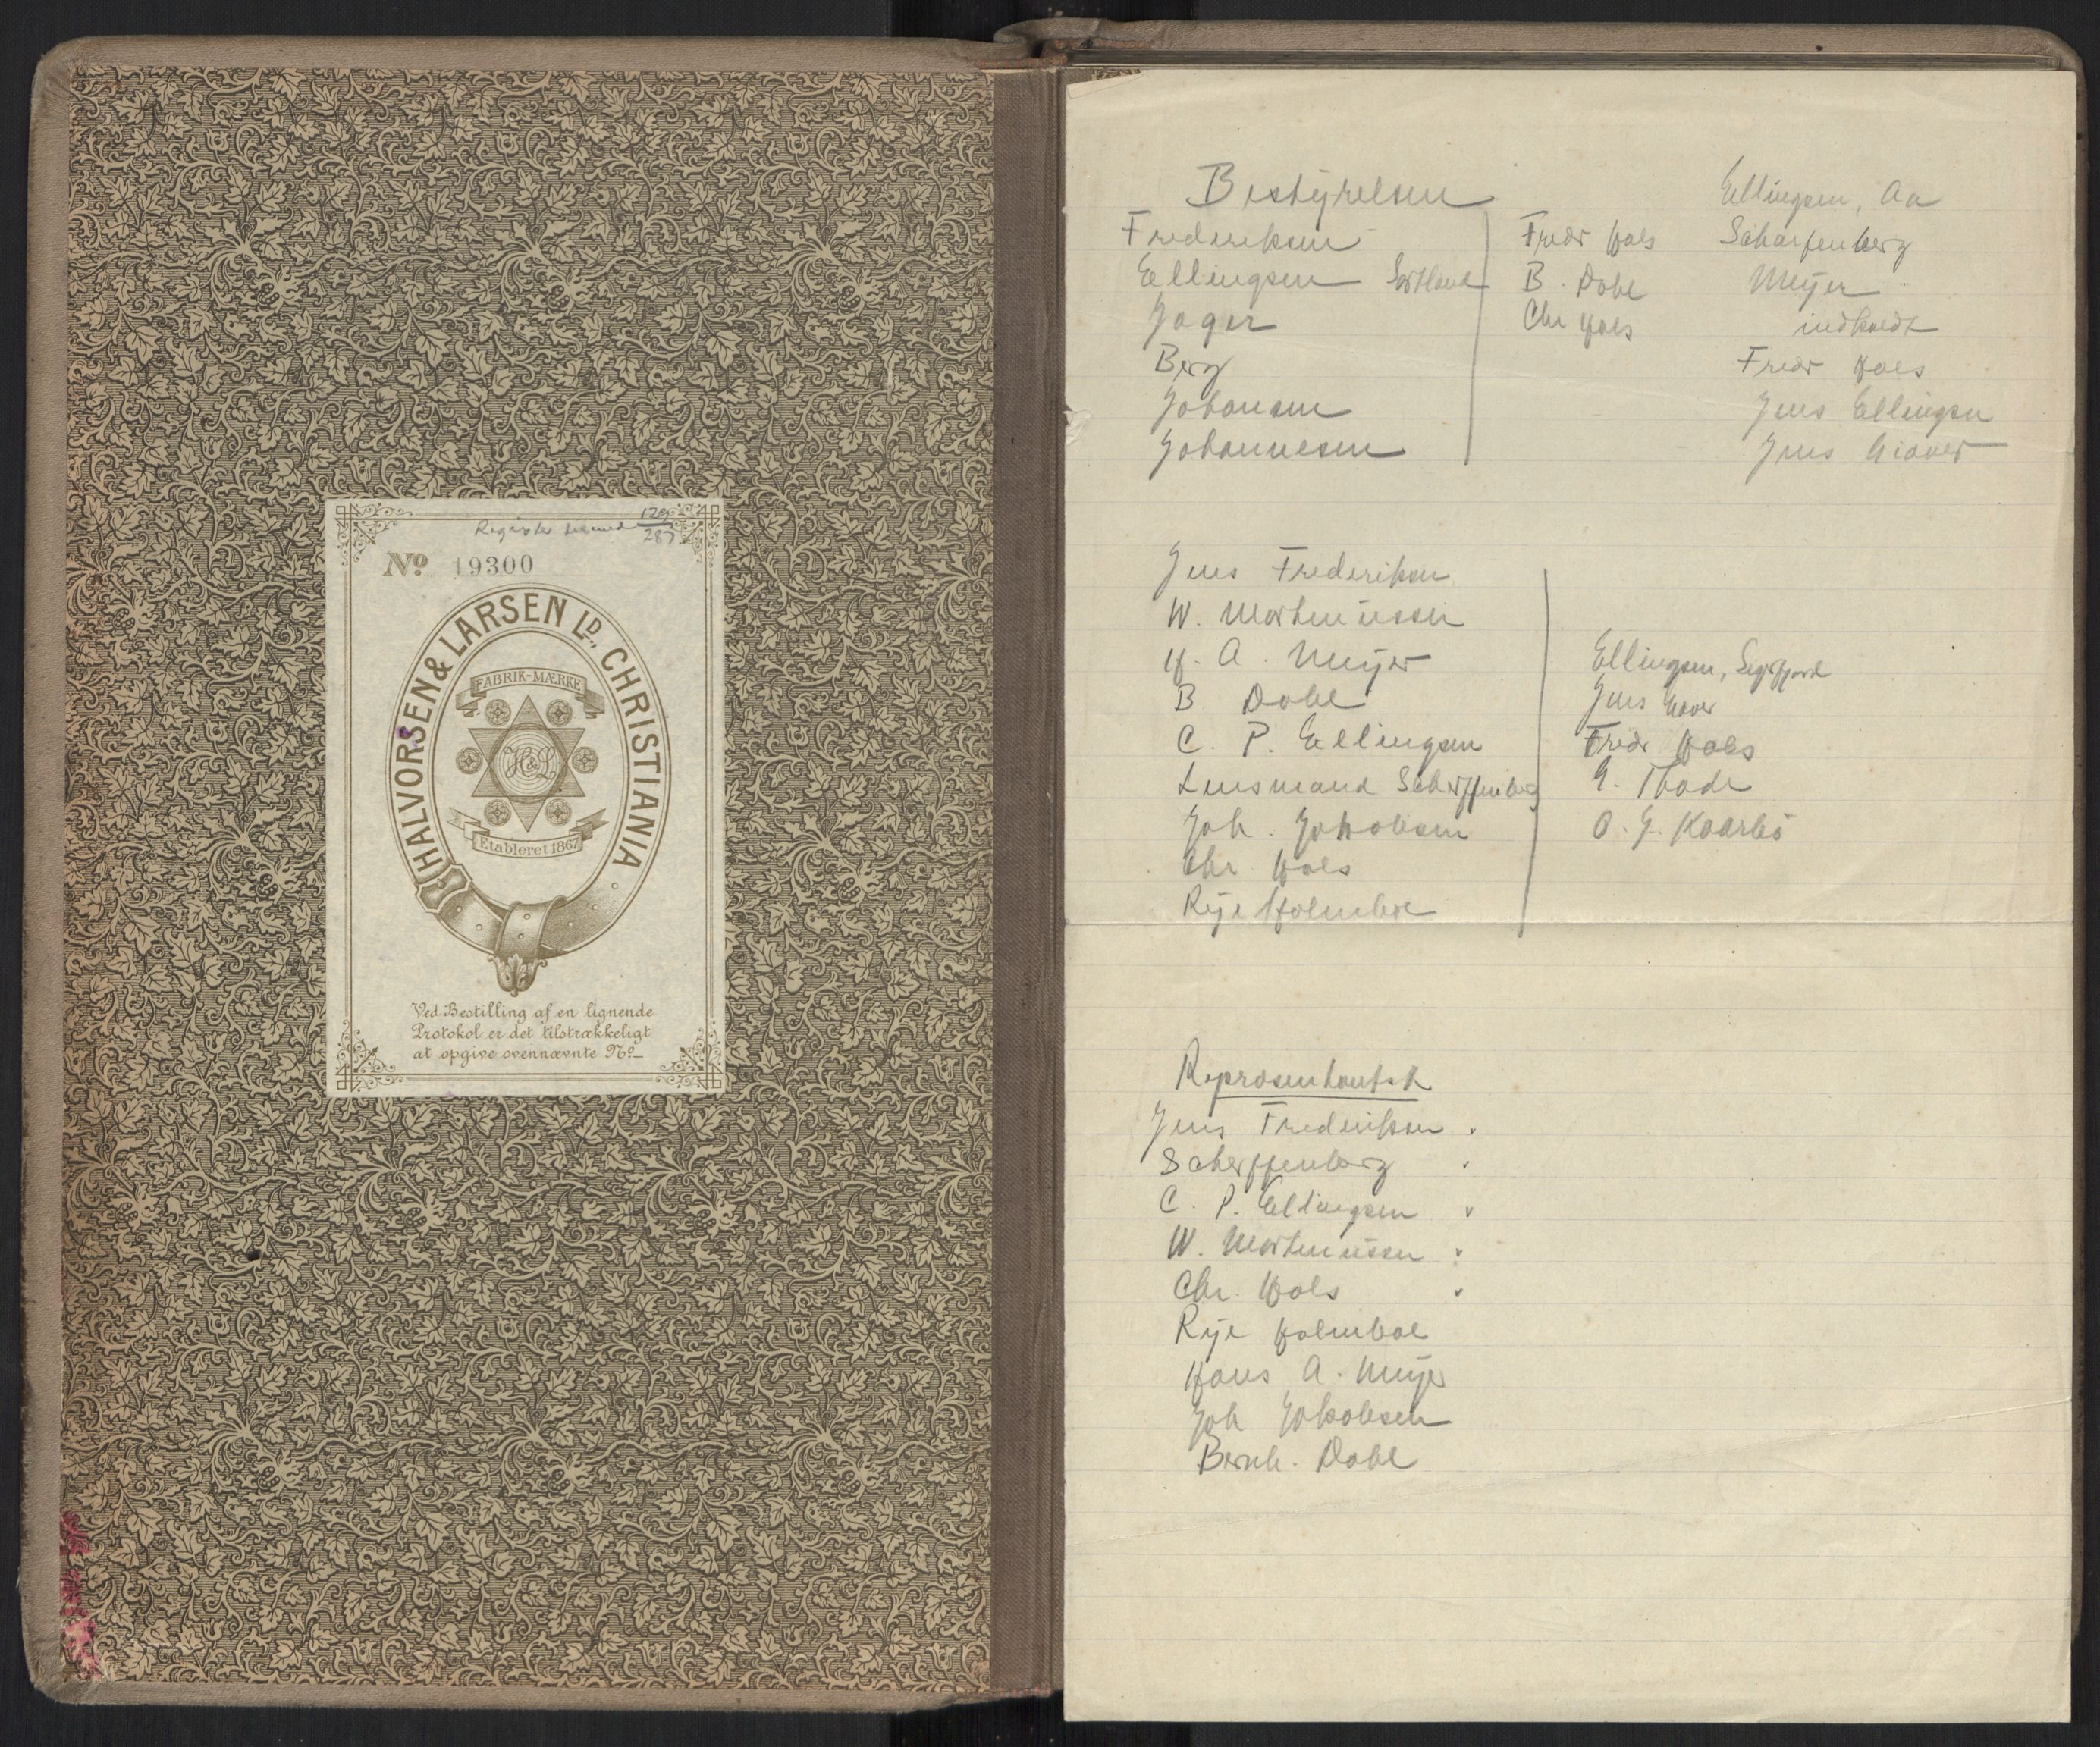 Register
129
287
No 19300
HALVORSEN & LARSEN LD., CHRISTIANIA
FABRIK-MÆRKE
H&L
Etableret 1867
Ved Bestilling af en lignende
Protokol er det tilstrækkeligt
at opgive ovennævnte No
Bestyrelsen
Frederiksen
Ellingsen Sortland
Jager
Berg
Johansen
Johannesen
Fredr Hals
B. Dahl
Chr Hals
Ellingsen, Aa
Scharfenberg
Meyer
indkaldt
Fredr Hals
Jens Ellingsen
Jens
Jens Frederiksen
W. Mortenussen
H. A. Meyer
B Dahl
C. P. Ellingsen
Lensmand Scherffenberg
Joh. Jakobsen
Chr Hals
Rye Holmboe
Ellingsen, Sigerfjord
Jens
Fredr Hals
G. Thode
O. J. Kaarbö
Repræsentantsk
Jens Frederiksen
Scherffenberg
C. P. Ellingsen
W. Mortenussen
Chr. Hals
Rye Holmboe
Hans A. Meyer
Joh Jakobsen
Bernh. Dahl